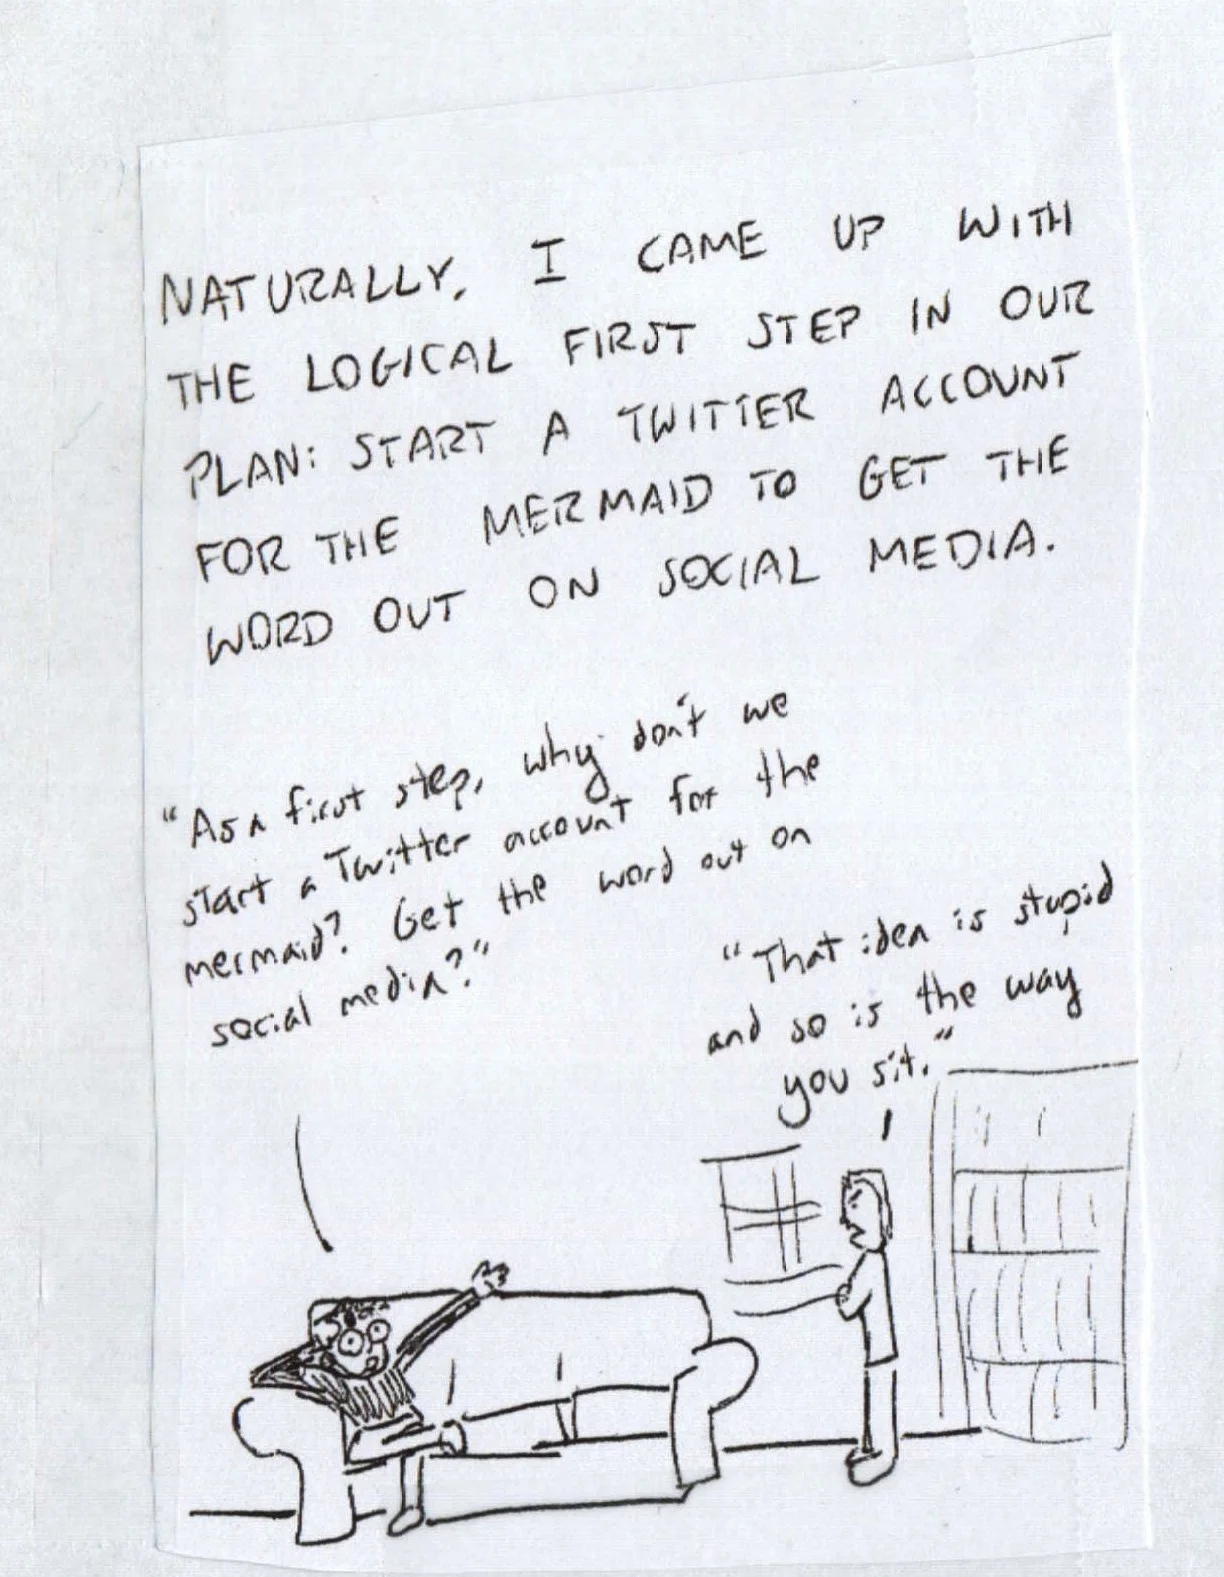 NATURALLY, I CAME UP WITH
THE LOGICAL FIRST STEP IN OUR
PLAN: START A TWITTER ACCOUNT
FOR THE MERMAID TO GET THE
WORD OUT ON SOCIAL MEDIA.
"As a first step, why don't we
start a Twitter account for the
mermaid? Get the word out on
social media?"
"That idea is stupid
and so is the way
you sit."